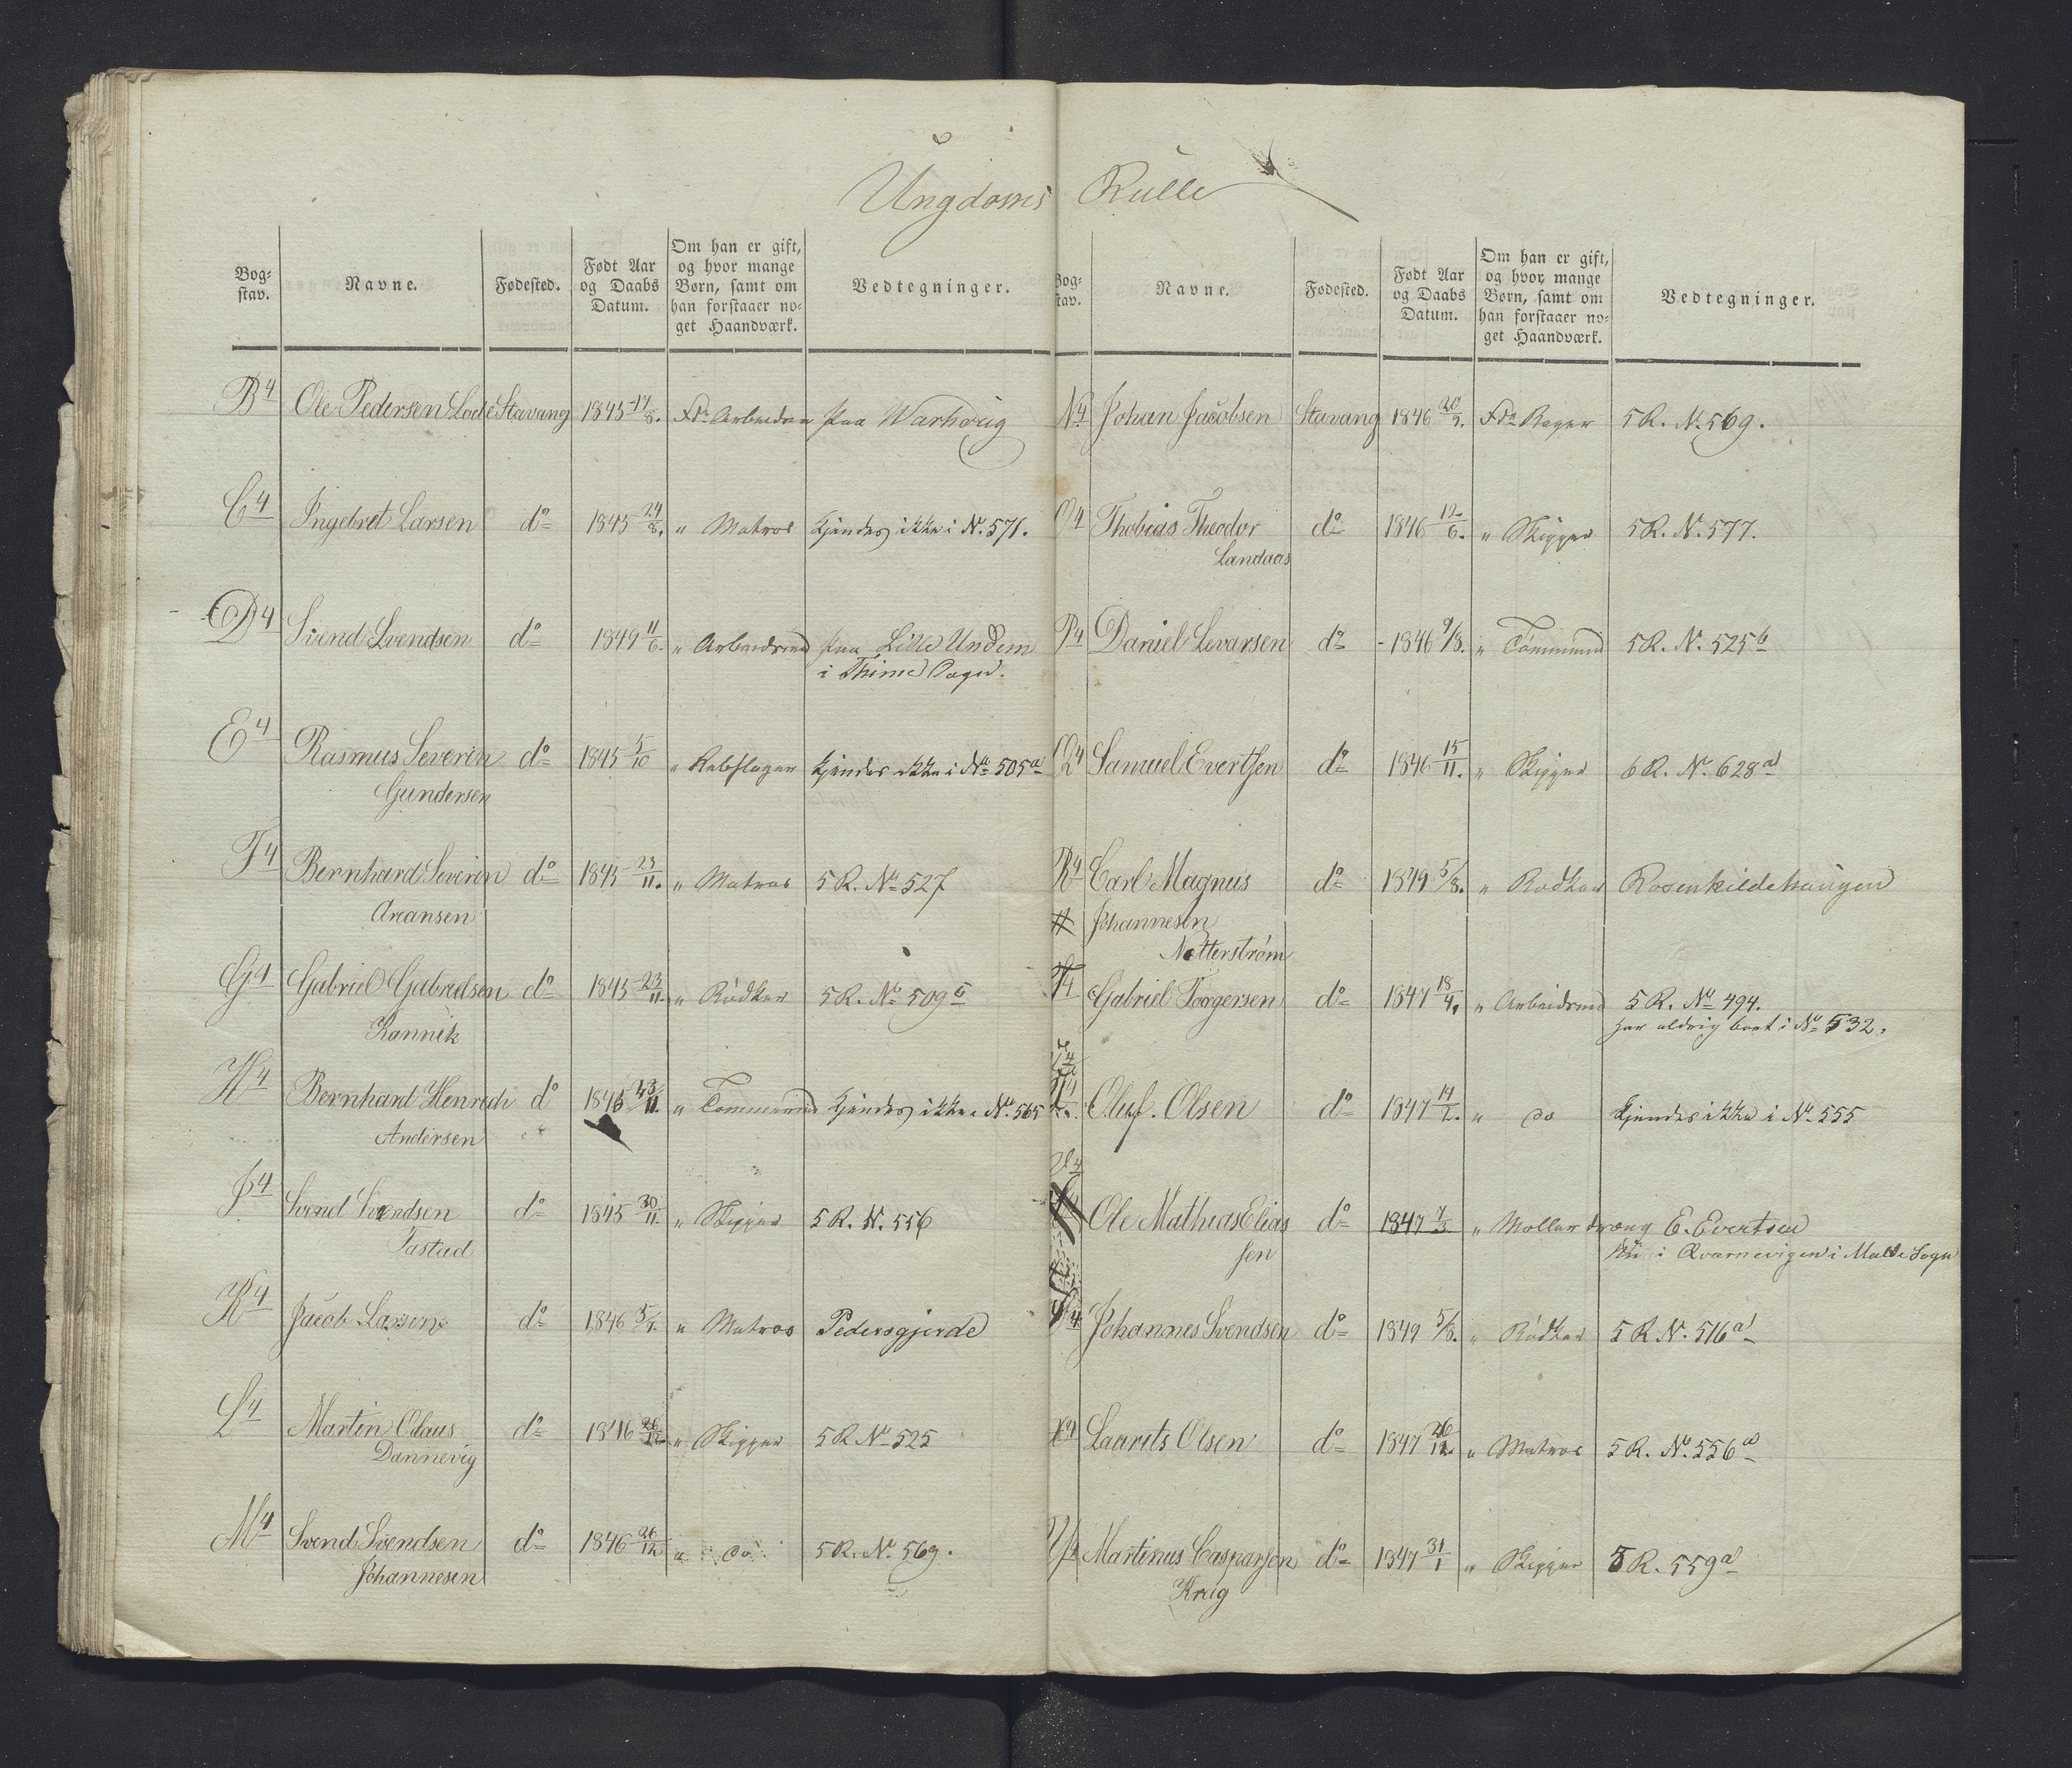 Ungdoms Rulle
Bog-
stav.
Navne.
Fødested.
Født Aar
og Daabs
Datum.
Om han er gift,
og hvor mange
Børn, samt om
han forstaaer no-
get Haandværk.
Vedtegninger.
B4 Ole Pedersen Lode Stavang 1845 17/8. Fdr Arbeider paa Warhoug
C4 Ingebret Larsen do 1845 24/8. " Matros kjendes ikke i No. 571.
D4 Svend Svendsen do 1849 11/6. " Arbeidsmd paa Lille Undem
i Thime Sogn.
E4 Rasmus Severin do 1845 5/10 " Rebslager kjendes ikke i No 505a
Gundersen
F4 Bernhard Severin do 1845 23/11. " Matros 5 R. No 527
Areansen
G4 Gabriel Gabrielsen do 1845 23/11. " Rødker 5 R. No 509b
Kannik
H4 Bernhard Henrich do 1846 23/11. " Tømmermd kjendes ikke i No. 565
Andersen
J4 Svend Svendsen do 1845 30/11. " Skipper 5 R. N. 556
Tastad
K4 Jacob Larsen do 1846 5/1. " Matros Pedersgjerde
L4 Martin Olaus do 1846 26/12. " Skipper 5 R. No 525
Dannevig
M4 Svend Svendsen do 1846 26/12 " do 5 R. No. 569.
Johannesen
Bog-
stav.
Navne.
Fødested.
Født Aar
og Daabs
Datum.
Om han er gift,
og hvor mange
Børn, samt om
han forstaaer no-
get Haandværk.
Vedtegninger.
N4 Johan Jacobsen Stavang 1846 20/9. Fdr Bager 5 R. N. 569.
O4 Thobias Theodor do 1846 12/6. " Skipper 5 R. N. 577.
Landaas
P4 Daniel Sevarsen do - 1846 9/8. " Tømmermd 5 R. N. 525b
Q4 Samuel Evertsen do 1846 15/11. " Skipper 6 R. No. 628a
R4 Carl Magnus do 1849 5/8. " Rødker Rosenkildehaugen
# Johannesen
Netterstrøm
Gabriel Torgersen do 1847 18/4. " Arbeidsmd 5 R. No 494.
har aldrig boet i No 532.
Oluf. Olsen do 1847 14/2. " do kjendes ikke i No. 555
Ole Mathias Elias do 1847 7/3 " Møllerdreng E. Evertsen
sen
i Qvarnevigen i Malle Sogn
Johannes Svendsen do 1849 5/8. " Rødker 5 R N. 516a
X4 Laurits Olsen do 1847 26/12. " Matros 5 R. No. 556a
Y4 Martinus Casparsen do 1847 31/1 " Skipper 5 R. 559a
Krug